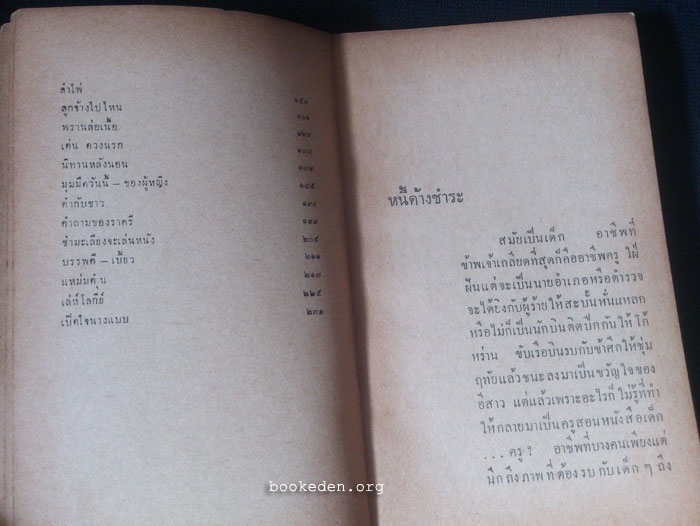 ลำไพ่
ลูกช้างไปไหน ๑๕๑
พรานล่อเนื้อ ๑๖๑
เด่น ดวงนรก
นิทานหลังนอน ๑๗๑
มุมมืดวันนี้ – ของผู้หญิง ๑๗๙
ดำกับขาว ๑๘๕
คำถามของราตรี ๑๙๑
ชำมะเลียงจะเล่นหนัง ๑๙๗
บรรพตี – เบี้ยว ๒๐๕
แหม่มดำน ๒๑๑
เล่ห์โลกีย์ ๒๑๗
เปิดใจนางแบบ ๒๒๕
๒๓๑
หนี้ค้างชำระ
สมัยเป็นเด็ก อาชีพที่
ข้าพเจ้าเกลียดที่สุดก็คืออาชีพครู ใฝ่
ฝันแต่จะเป็นนายอำเภอหรือตำรวจ
จะได้ยิงกับผู้ร้ายให้สะบั้นหั่นแหลก
หรือไม่ก็เป็นนักบินติดปีกกันให้โก้
หร่าน ขับเรือบินรบกับข้าศึกให้ชุ่ม
ฤทัยแล้วชนะลงมาเป็นขวัญใจของ
อีสาว แต่แล้วเพราะอะไรก็ไม่รู้ที่ทำ
ให้กลายมาเป็นครูสอนหนังสือเด็ก
... ครู? อาชีพที่บางคนเพียงแต่
นึกถึงภาพที่ต้องรบกับเด็ก ๆ ถึง
bookeden.org